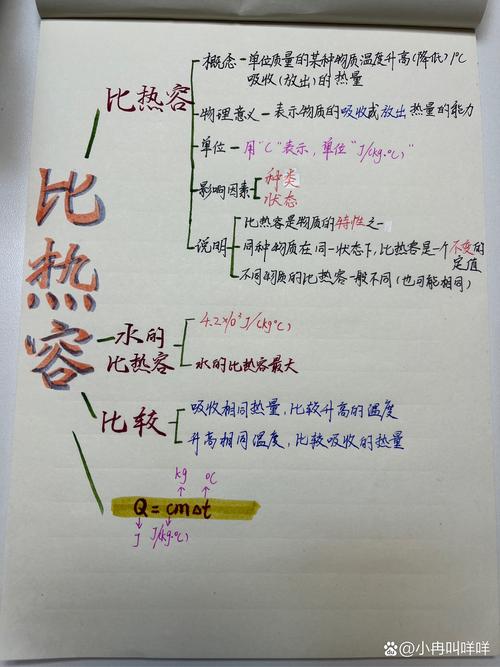 比热容
比热容
概念-单位质量的某种物质温度升高(降低)1℃
吸收(放出)的热量
物理意义-表示物质的吸收或放出热量的能力
单位-用"C"表示,单位"J/(kg·℃)"
影响因素
种类
状态
说明
比热容是物质的特性之一
同种物质在同一状态下,比热容是一个不变的
定值
不同物质的比热容一般不同(也可能相同)
水的
比热容
4.2×10³J/(kg℃)
水的比热容最大
比较
吸收相同热量,比较升高的温度
升高相同温度,比较吸收的热量
kg ℃
Q=cm△t
J J/(kg·℃)
小冉叫咩咩